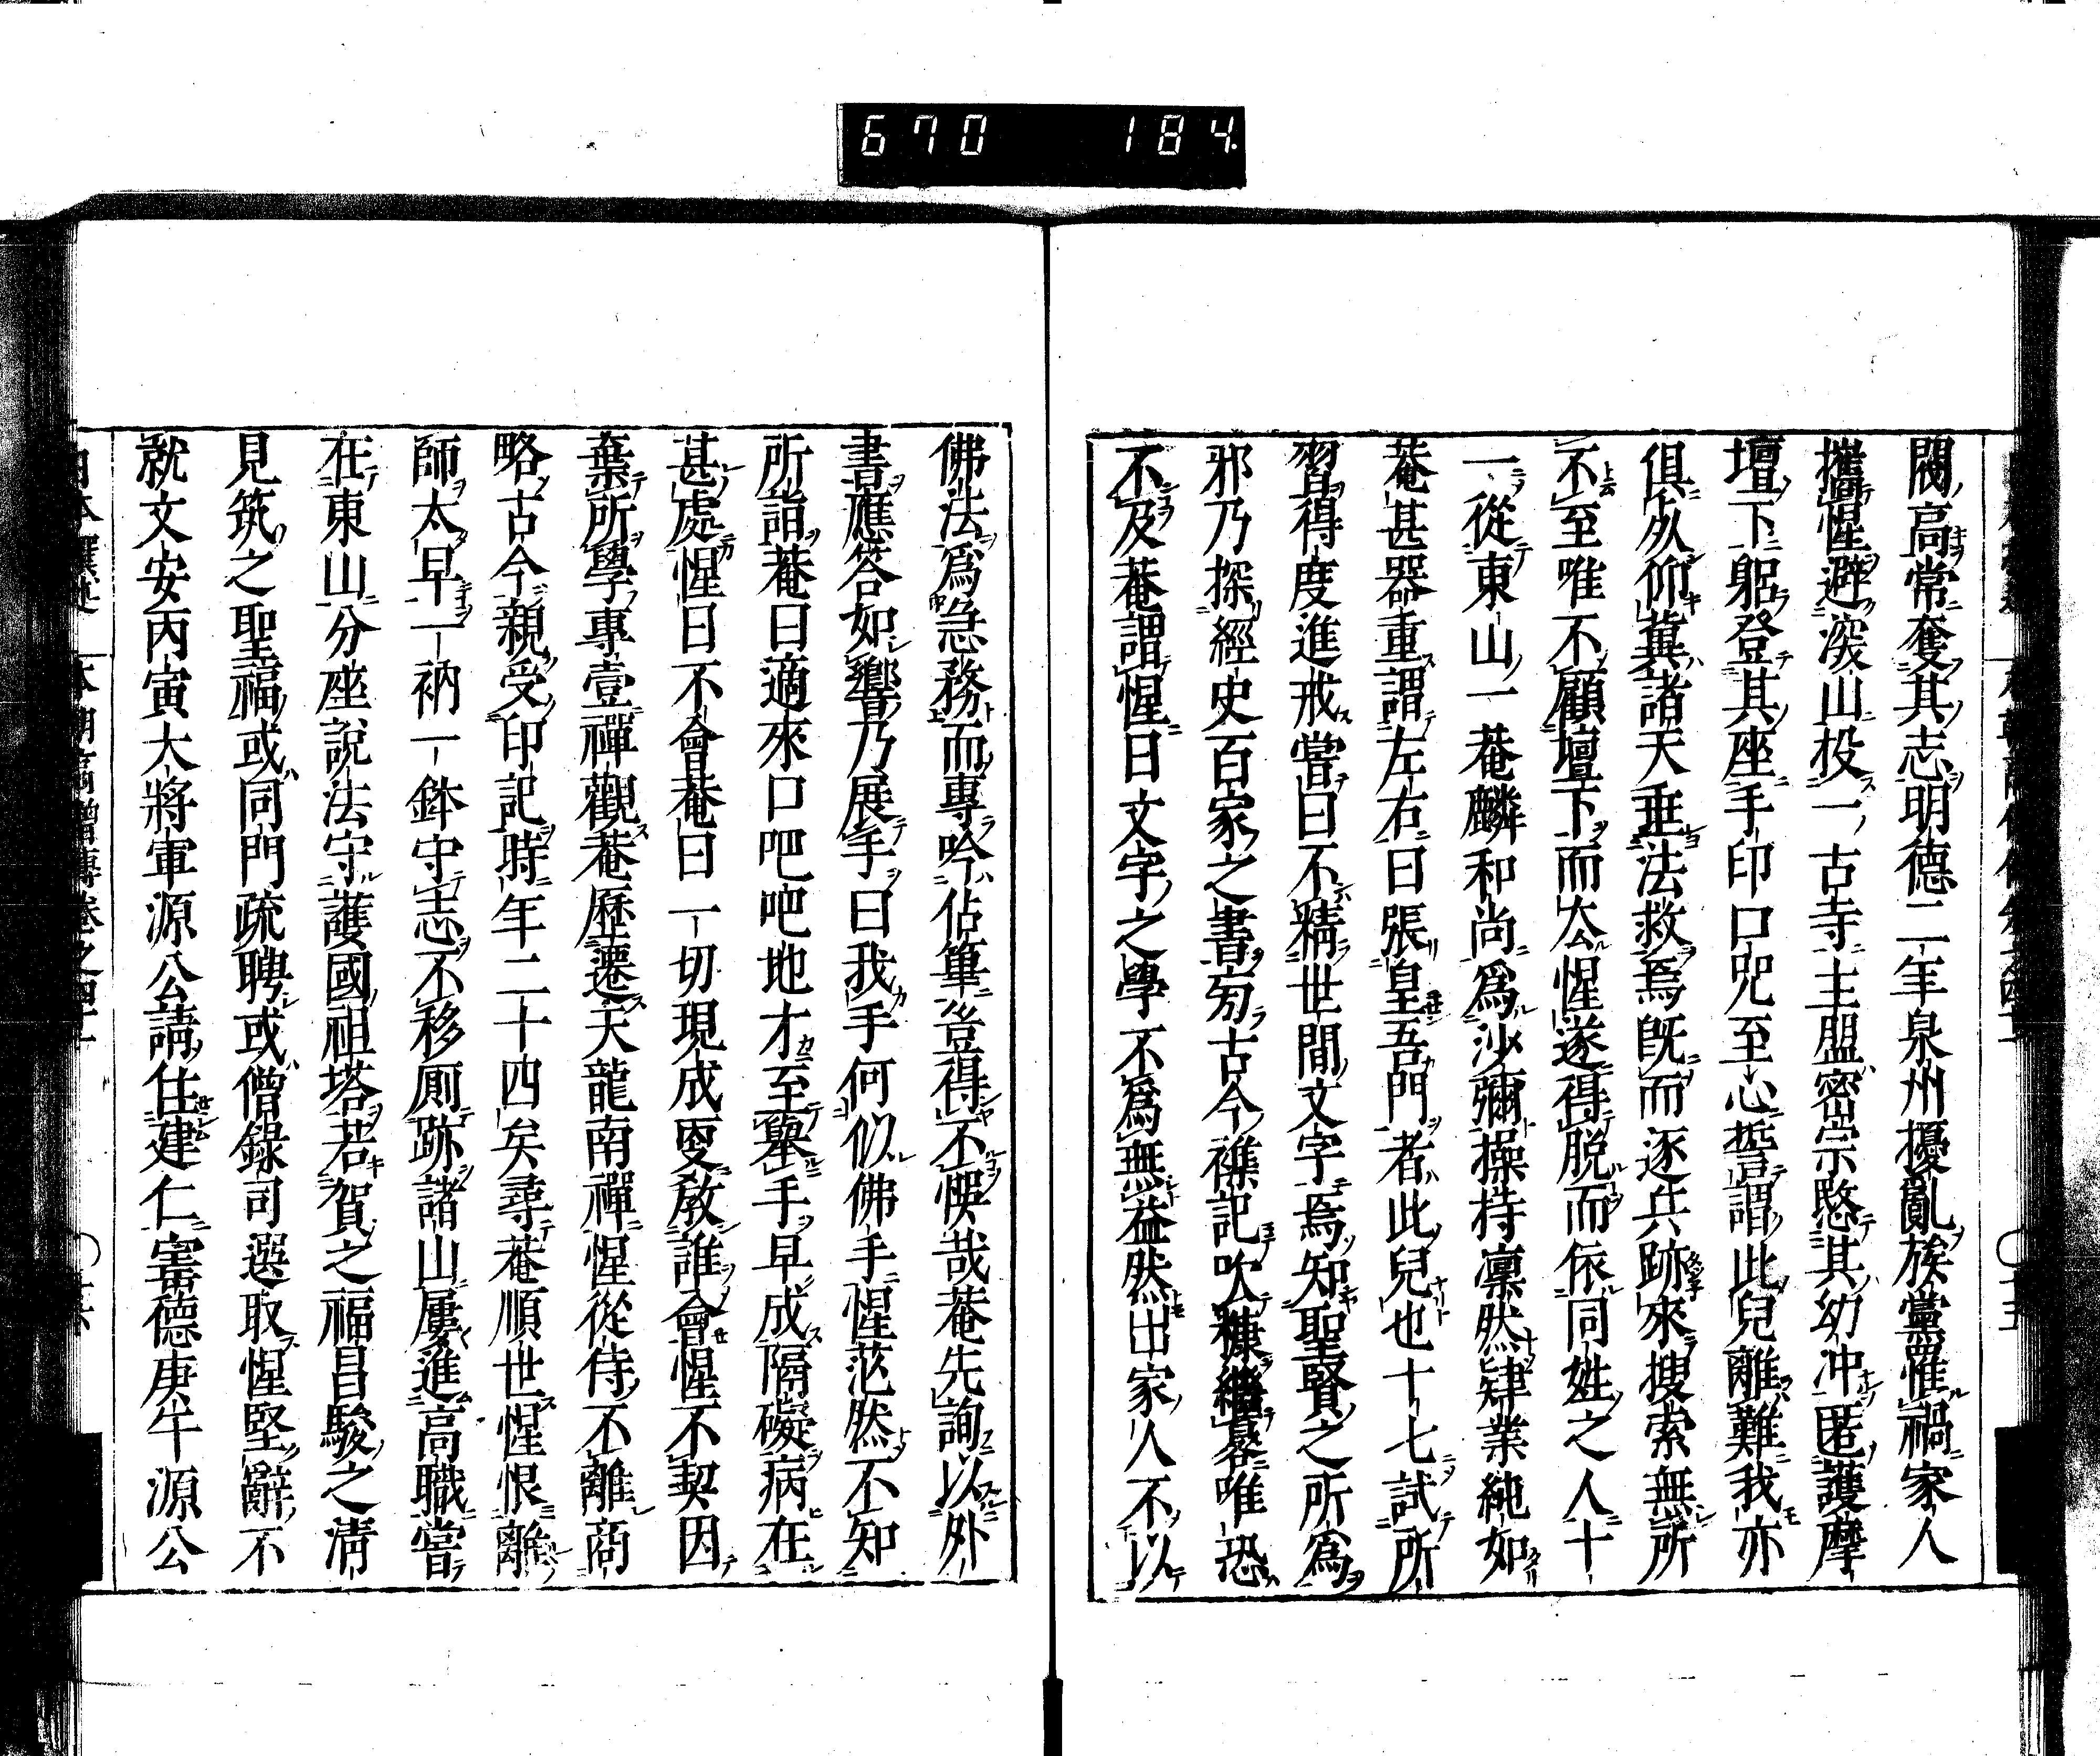 670 184
閥高常奪其志明德二年泉州擾亂族黨罹禍家人
攜惺避深山投一古寺主盟密宗愍其幼冲匿護摩
壇下躬登其座手印口咒至心誓謂此兒離難我亦
俱夙仰冀諸天垂法救焉既而逐兵跡來搜索無所
不至唯不顧壇下而去惺遂得脱而依同姓之人十
一從東山一菴麟和尚爲沙彌操持凛然肄業純如
菴甚器重謂左右曰張皇吾門者此兒也十七試所
習得度進戒嘗曰不精世間文字焉知聖賢之所爲
邪乃探經史百家之書旁古今襍記吹糠繼晷唯恐
不及菴謂惺曰文字之學不爲無益然出家人不以
佛法爲急務而專吟佔篳豈得不悞哉菴先詢以外
書應答如響乃展手曰我手何似佛手惺茫然不知
所詣菴曰適來口吧吧地才至擧手早成隔礙病在
甚處惺曰不會菴曰一切現成更教誰會惺不契因
棄所學專壹禪觀菴歷遷天龍南禪惺從侍不離商
略古今親受印記時年二十四矣尋菴順世惺恨離
師太早一衲一鉢守志不移厠跡諸山屢進高職嘗
在東山分座説法守護國祖塔若賀之福昌駿之清
見筑之聖福或同門疏聘或僧錄司選取惺堅辭不
就文安丙寅大將軍源公請住建仁寶德庚午源公
本朝高僧傳卷之四十